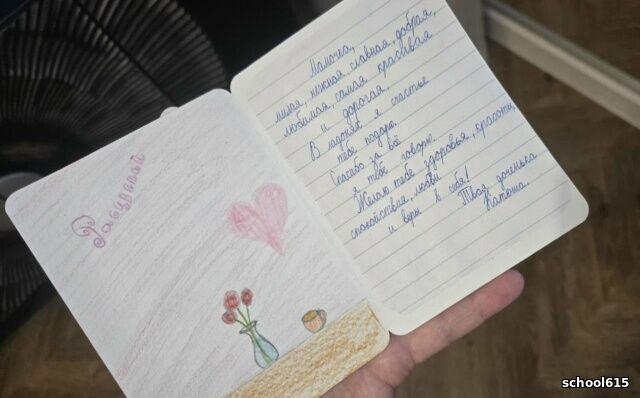 Расцветай
Мамочка,
милая, нежная, славная, добрая,
любимая, самая красивая
и дорогая.
В ладонях я счастье
тебе подарю.
Спасибо за всё
я тебе говорю.
Желаю тебе здоровья, красоты,
спокойствия, любви
и веры в себя!
Твоя доченька
Катюша.
school615